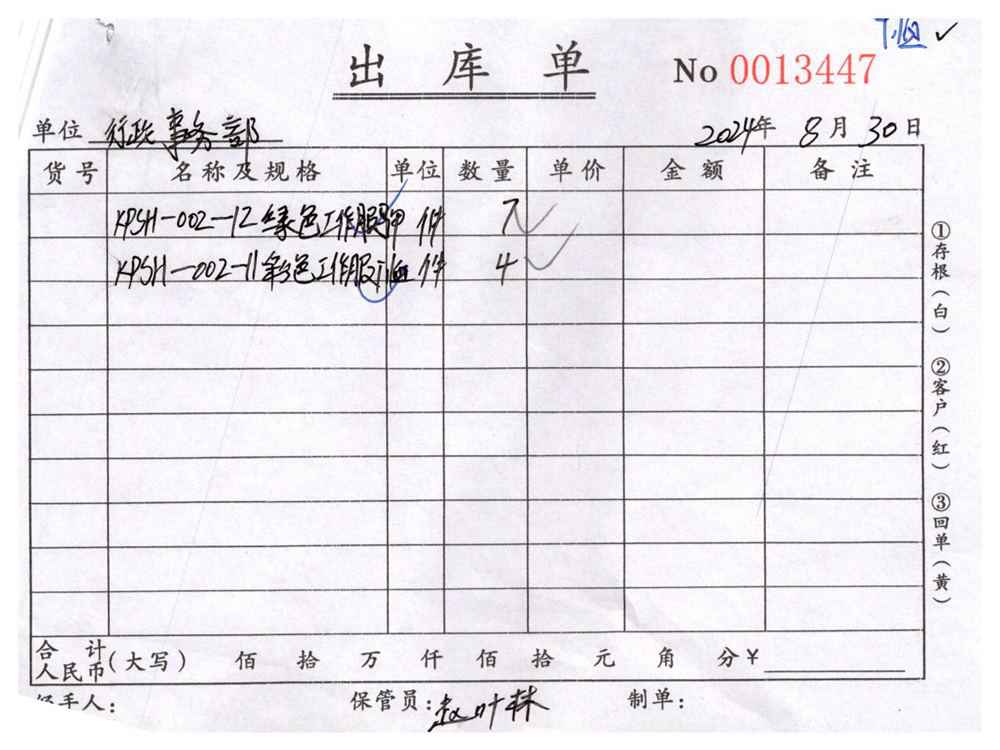 出库单 No 0013447
单位 行政事务部 2024年 8月 30日
货号 名称及规格 单位 数量 单价 金额 备注
KPSH-002-12 绿色工作服 件 7
KPSH-002-11 彩色工作服 件 4
①存根(白) ②客户(红) ③回单(黄)
合计
人民币(大写) 佰 拾 万 仟 佰 拾 元 角 分 ¥
手人: 保管员:赵叶林 制单: